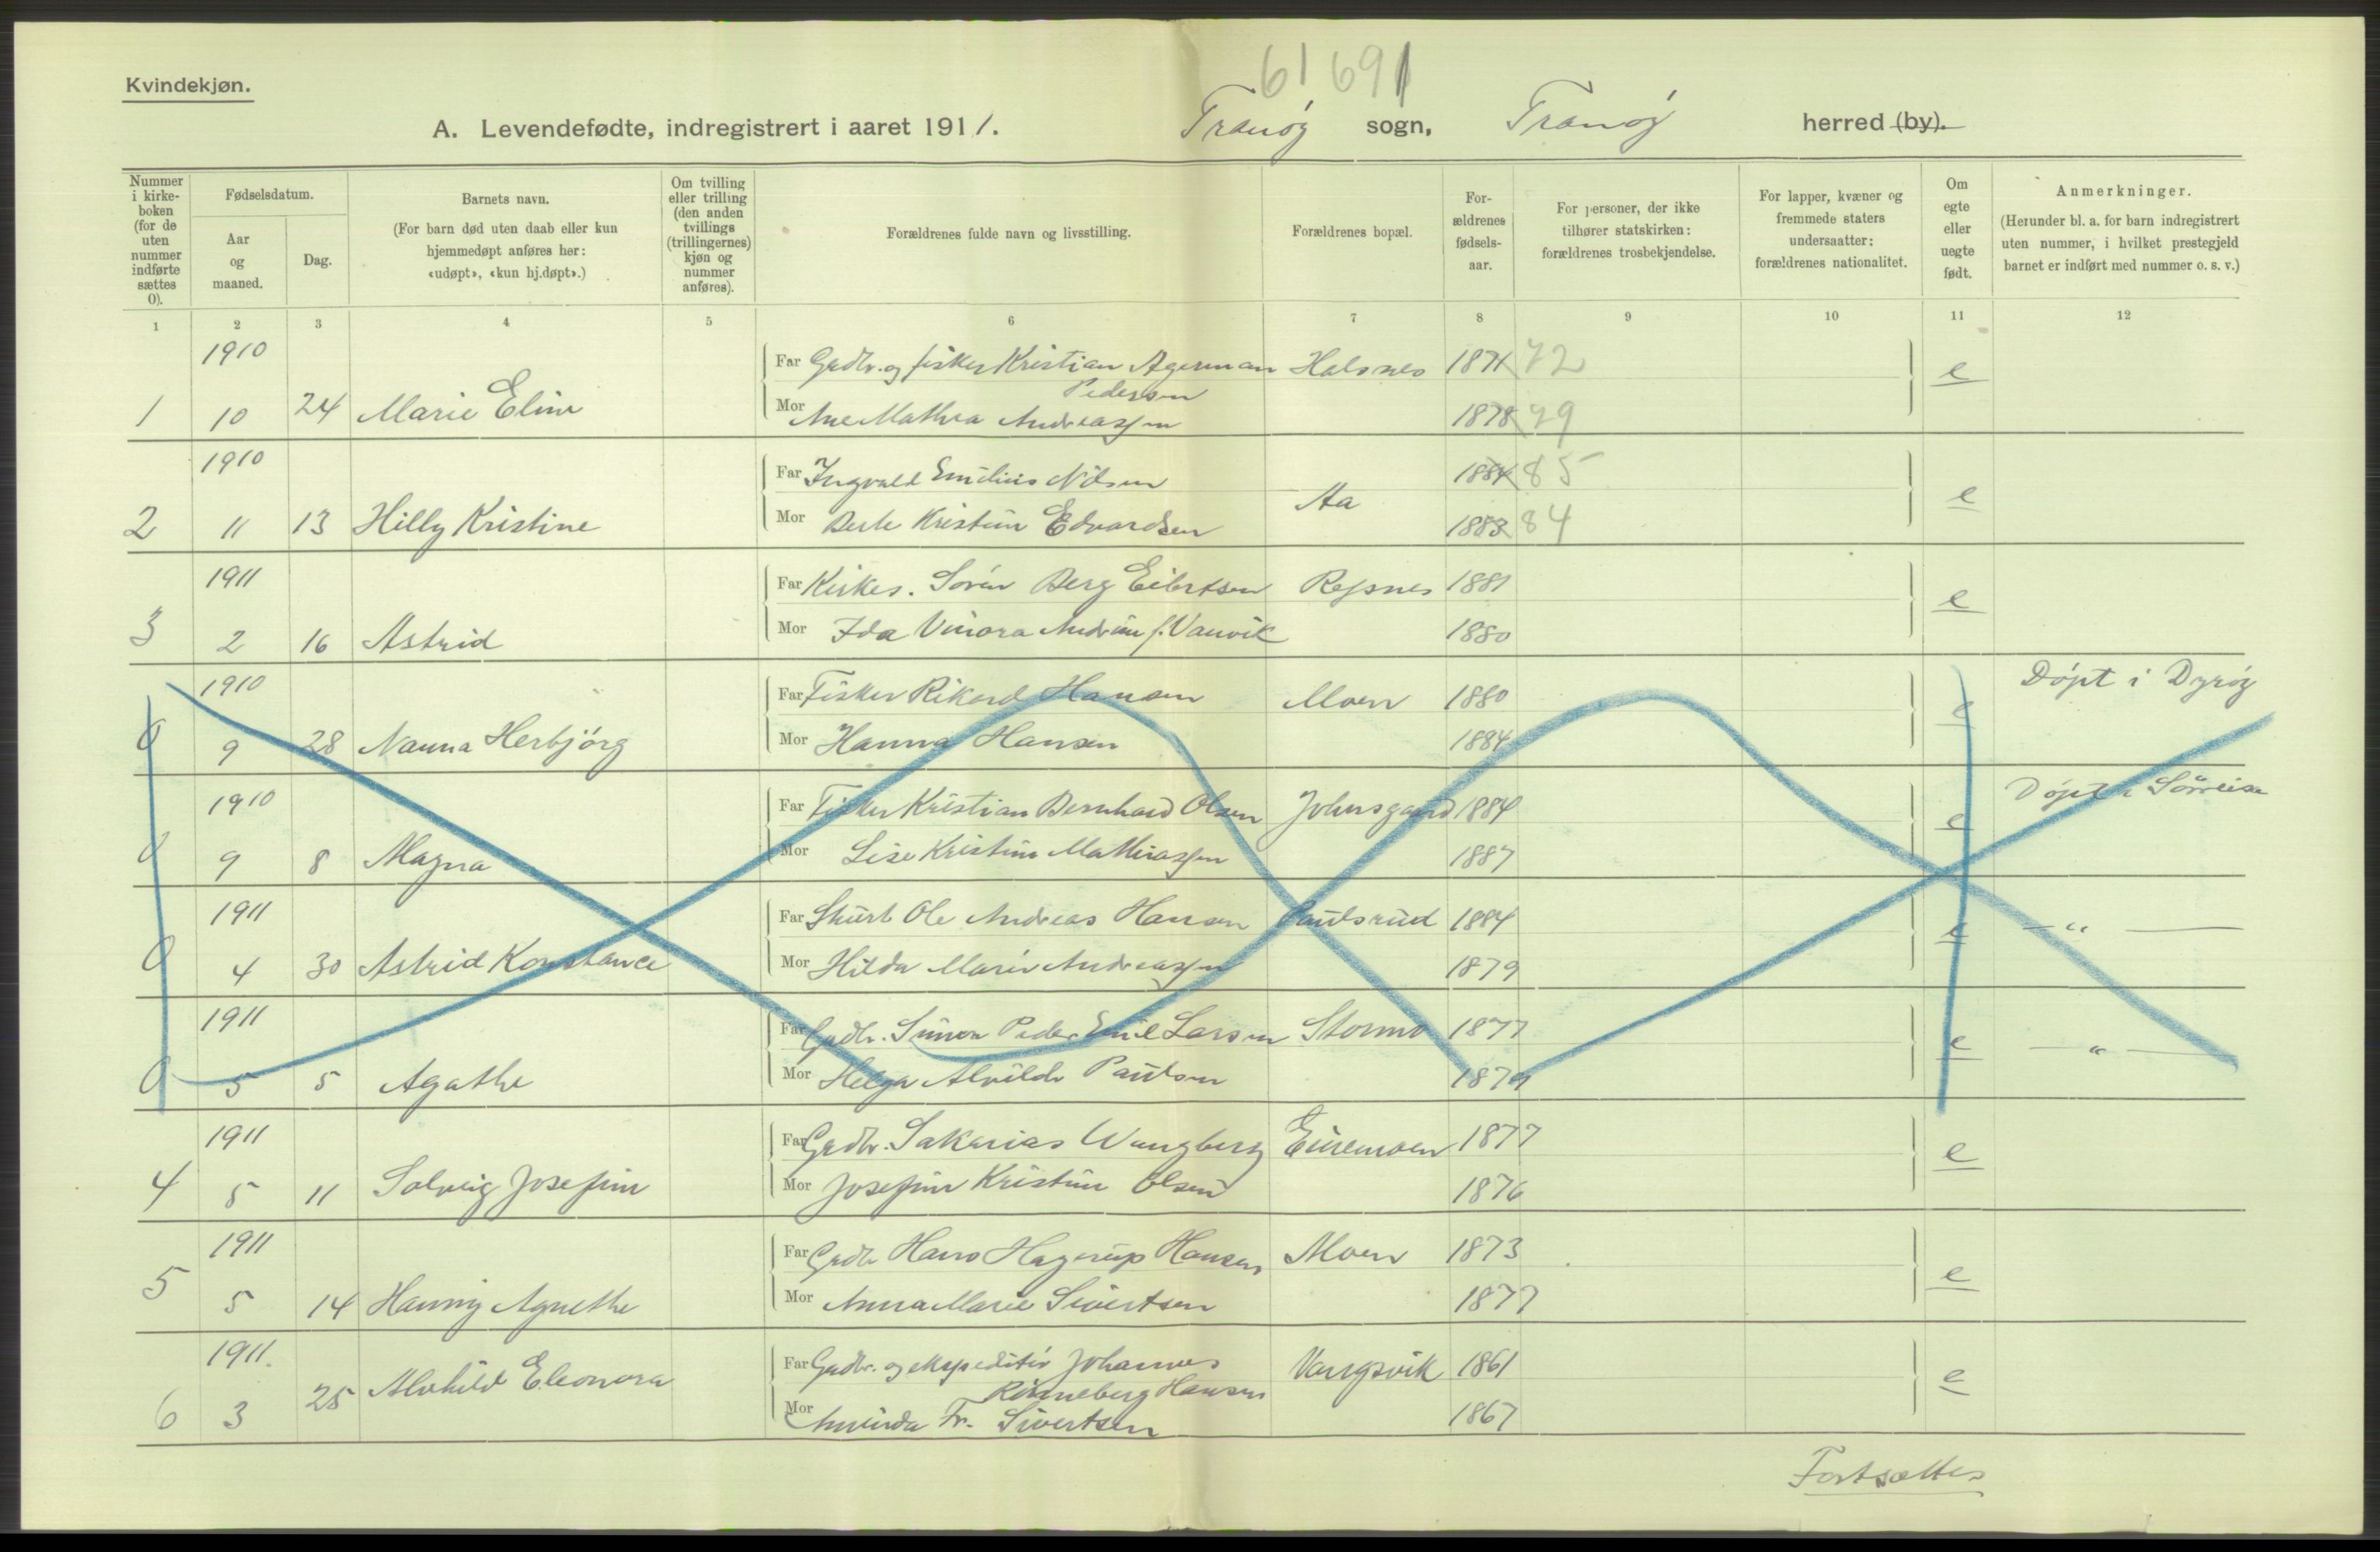 61 691
Kvindekjøn.
A. Levendefødte, indregistrert i aaret 1911. Tranøy sogn, Tranøy herred (by).
Nummer i kirkeboken (for de uten nummer indførte sættes 0).
Fødselsdatum.
Aar og maaned.
Dag.
Barnets navn.
(For barn død uten daab eller kun hjemmedøpt anføres her: «udøpt», «kun hj.døpt».)
Om tvilling eller trilling (den anden tvillings (trillingernes) kjøn og nummer anføres).
Forældrenes fulde navn og livsstilling.
Forældrenes bopæl.
Forældrenes fødselsaar.
For personer, der ikke tilhører statskirken: forældrenes trosbekjendelse.
For lapper, kvæner og fremmede staters undersaatter: forældrenes nationalitet.
Om egte eller uegte født.
Anmerkninger.
(Herunder bl. a. for barn indregistrert uten nummer, i hvilket prestegjeld barnet er indført med nummer o. s. v.)
1 2 3 4 5 6 7 8 9 10 11 12
1910 Far Grdbr. og fisker Kristian Agerman Pedersen Halsnes 1871 72 e
1 10 24 Marie Eline Mor Ane Mathea Andreassen 1878 79
1910 Far Ingvald Emilius Nilsen Aa 1884 85 e
2 11 13 Hilly Kristine Mor Kristine Edvardsen 1883 84
1911 Far Kirkes. Sørén Berg Eibertsen Refsnes 1881 e
3 2 16 Astrid Mor Ida Vinora Andrine f. Vanvik 1880
1910 Far Fisker Rikard Hansen Moen 1880 e Døpt i Dyrøy
0 9 28 Nanna Herbjørg Mor Hanna Hansen 1884
1910 Far Fisker Kristian Bernhard Olsen Johnsgaard 1884 e Døpt i Sørreisa
0 9 8 Magna Mor Lise Kristine Mathiassen 1887
1911 Far Ole Andreas Hansen Paulsrud 1884 e — " —
0 4 30 Astrid Konstance Mor Hilda Marie Andreassen 1879
1911 Far Grdbr. Simon Peder Emil Larsen Stormo 1877 e — " —
0 5 5 Agathe Mor Helga Alvilde Paulsen 1879
1911 Far Grdbr. Sakarias Wangberg 1877 e
4 5 11 Solveig Josefine Mor Josefine Kristine Olsen 1876
1911 Far Grdbr Hans Hagerup Hansen Moen 1873 e
5 5 14 Hanny Agnethe Mor Anna Marie Sivertsen 1877
1911. Far Grdbr. og ekspeditør Johannes Rønneberg Hansen Vangsvik 1861 e
6 3 25 Alvhild Eleonora Mor Aminda Fr. Sivertsen 1867
Fortsættes